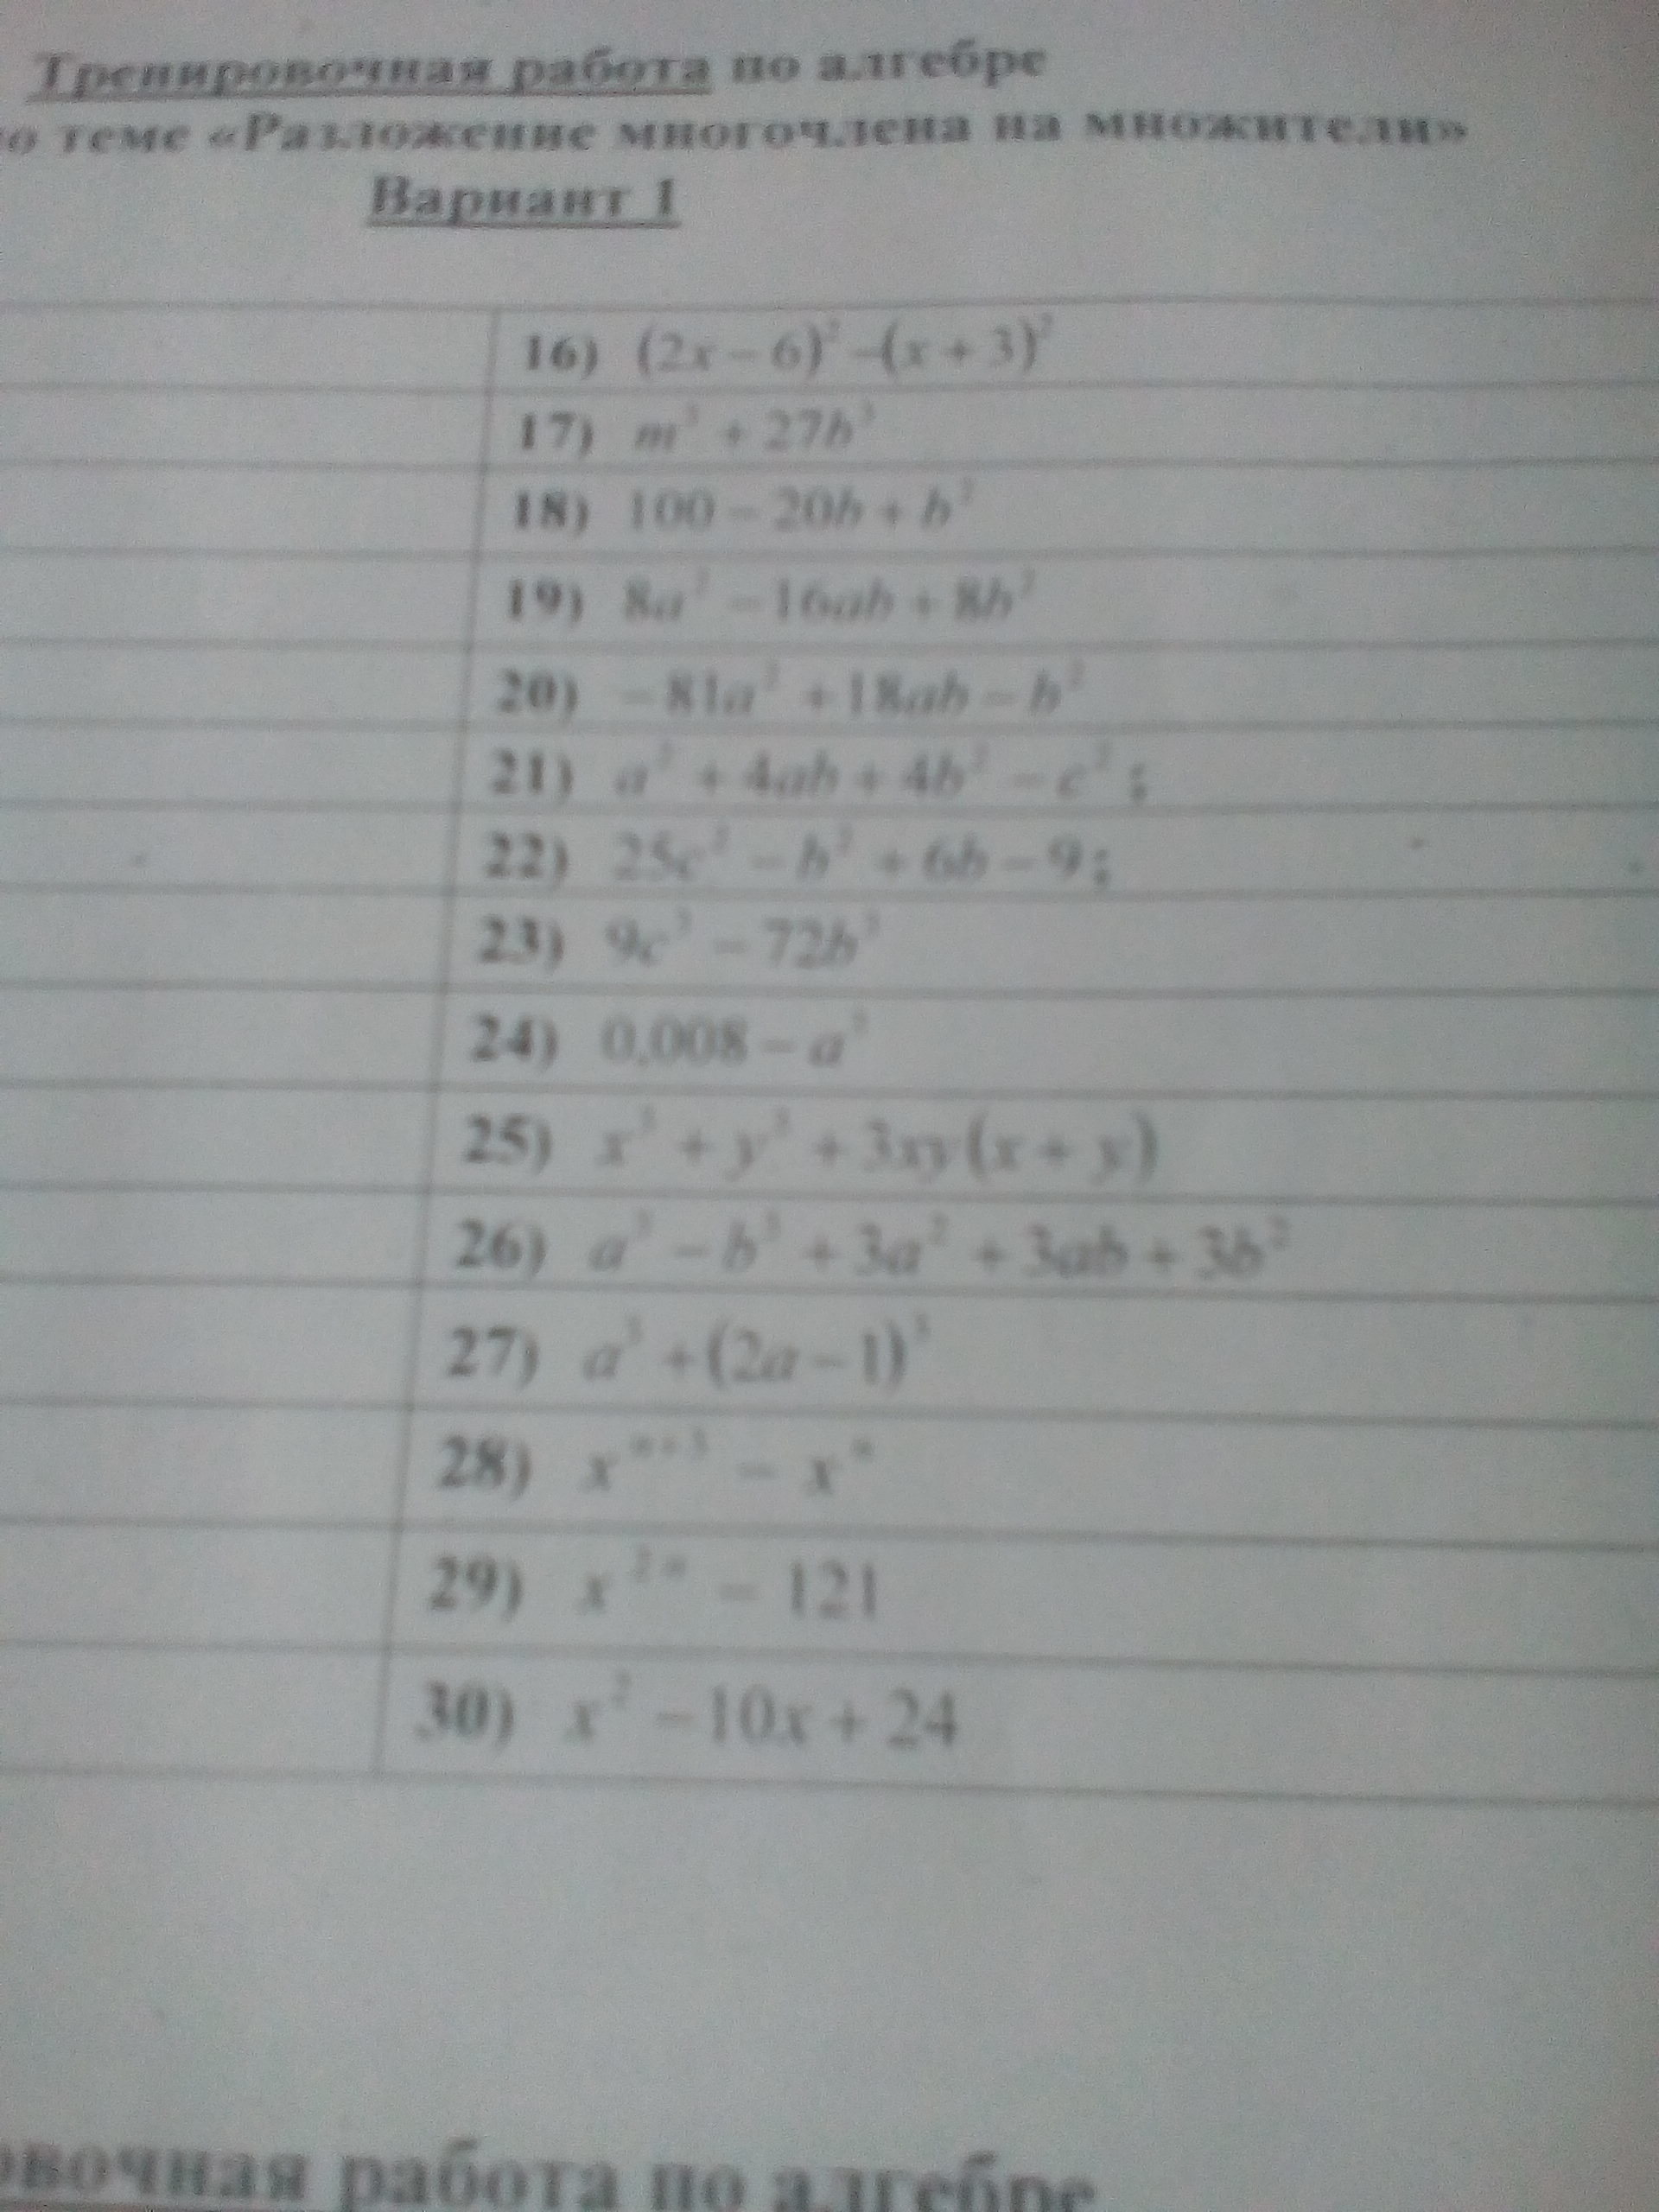 Тренировочная работа по алгебре
о теме «Разложение многочлена на множители»
Вариант 1
16) (2x – 6)² –(x + 3)²
17) m³ + 27b³
18) 100 – 20b + b²
19) 8a² – 16ab + 8b²
20) – 81a² + 18ab – b²
21) a² + 4ab + 4b² – c² ;
22) 25c² – b² + 6b – 9;
23) 9c³ – 72b³
24) 0,008 – a³
25) x³ + y³ + 3xy(x + y)
26) a³ – b³ + 3a² + 3ab + 3b²
27) a³ + (2a – 1)³
28) xⁿ⁺³ – xⁿ
29) x²ⁿ – 121
30) x² – 10x + 24
овочная работа по алгебре